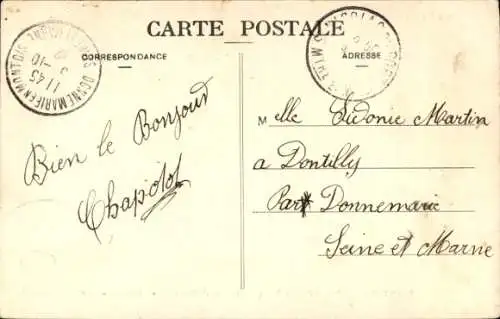 CARTE POSTALE
CORRESPONDANCE
ADRESSE
11 45
Bien le Bonjour
Chapotot
Melle Sidonie Martin
a Dontilly
Par Donnemarie
Seine et Marne